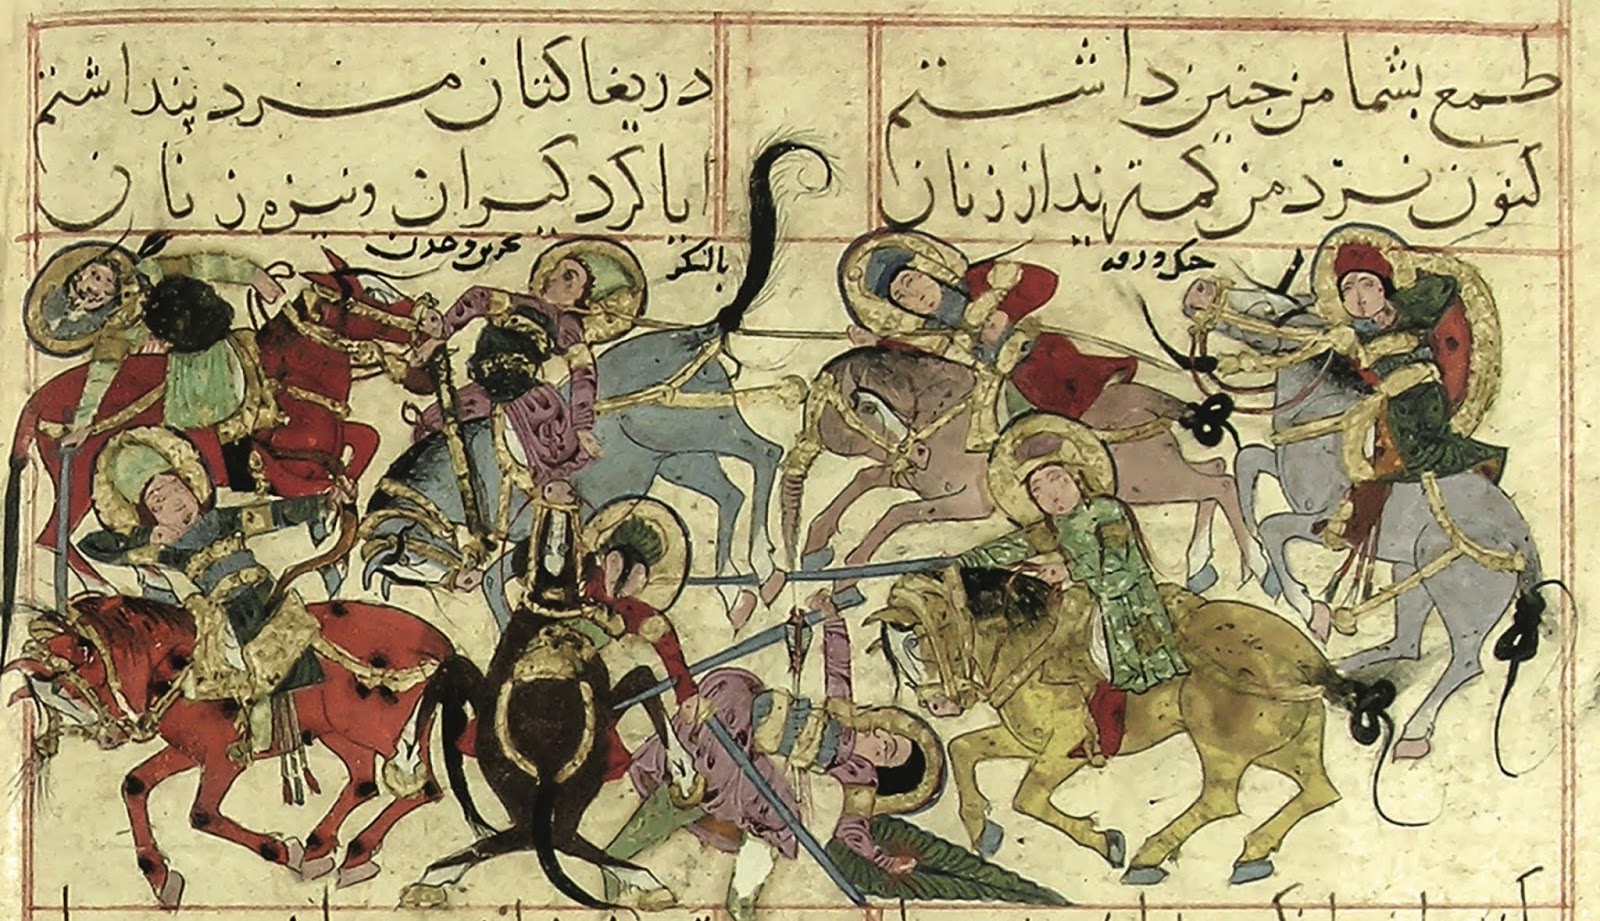 طمع بشما من جنین داشتم دریغا کتان مرد پنداشتم
کنون نزد من کمترید از زنان ایا کرد کیران و نیزه زنان
جنک ورقه بالشکر بحرین و عدن